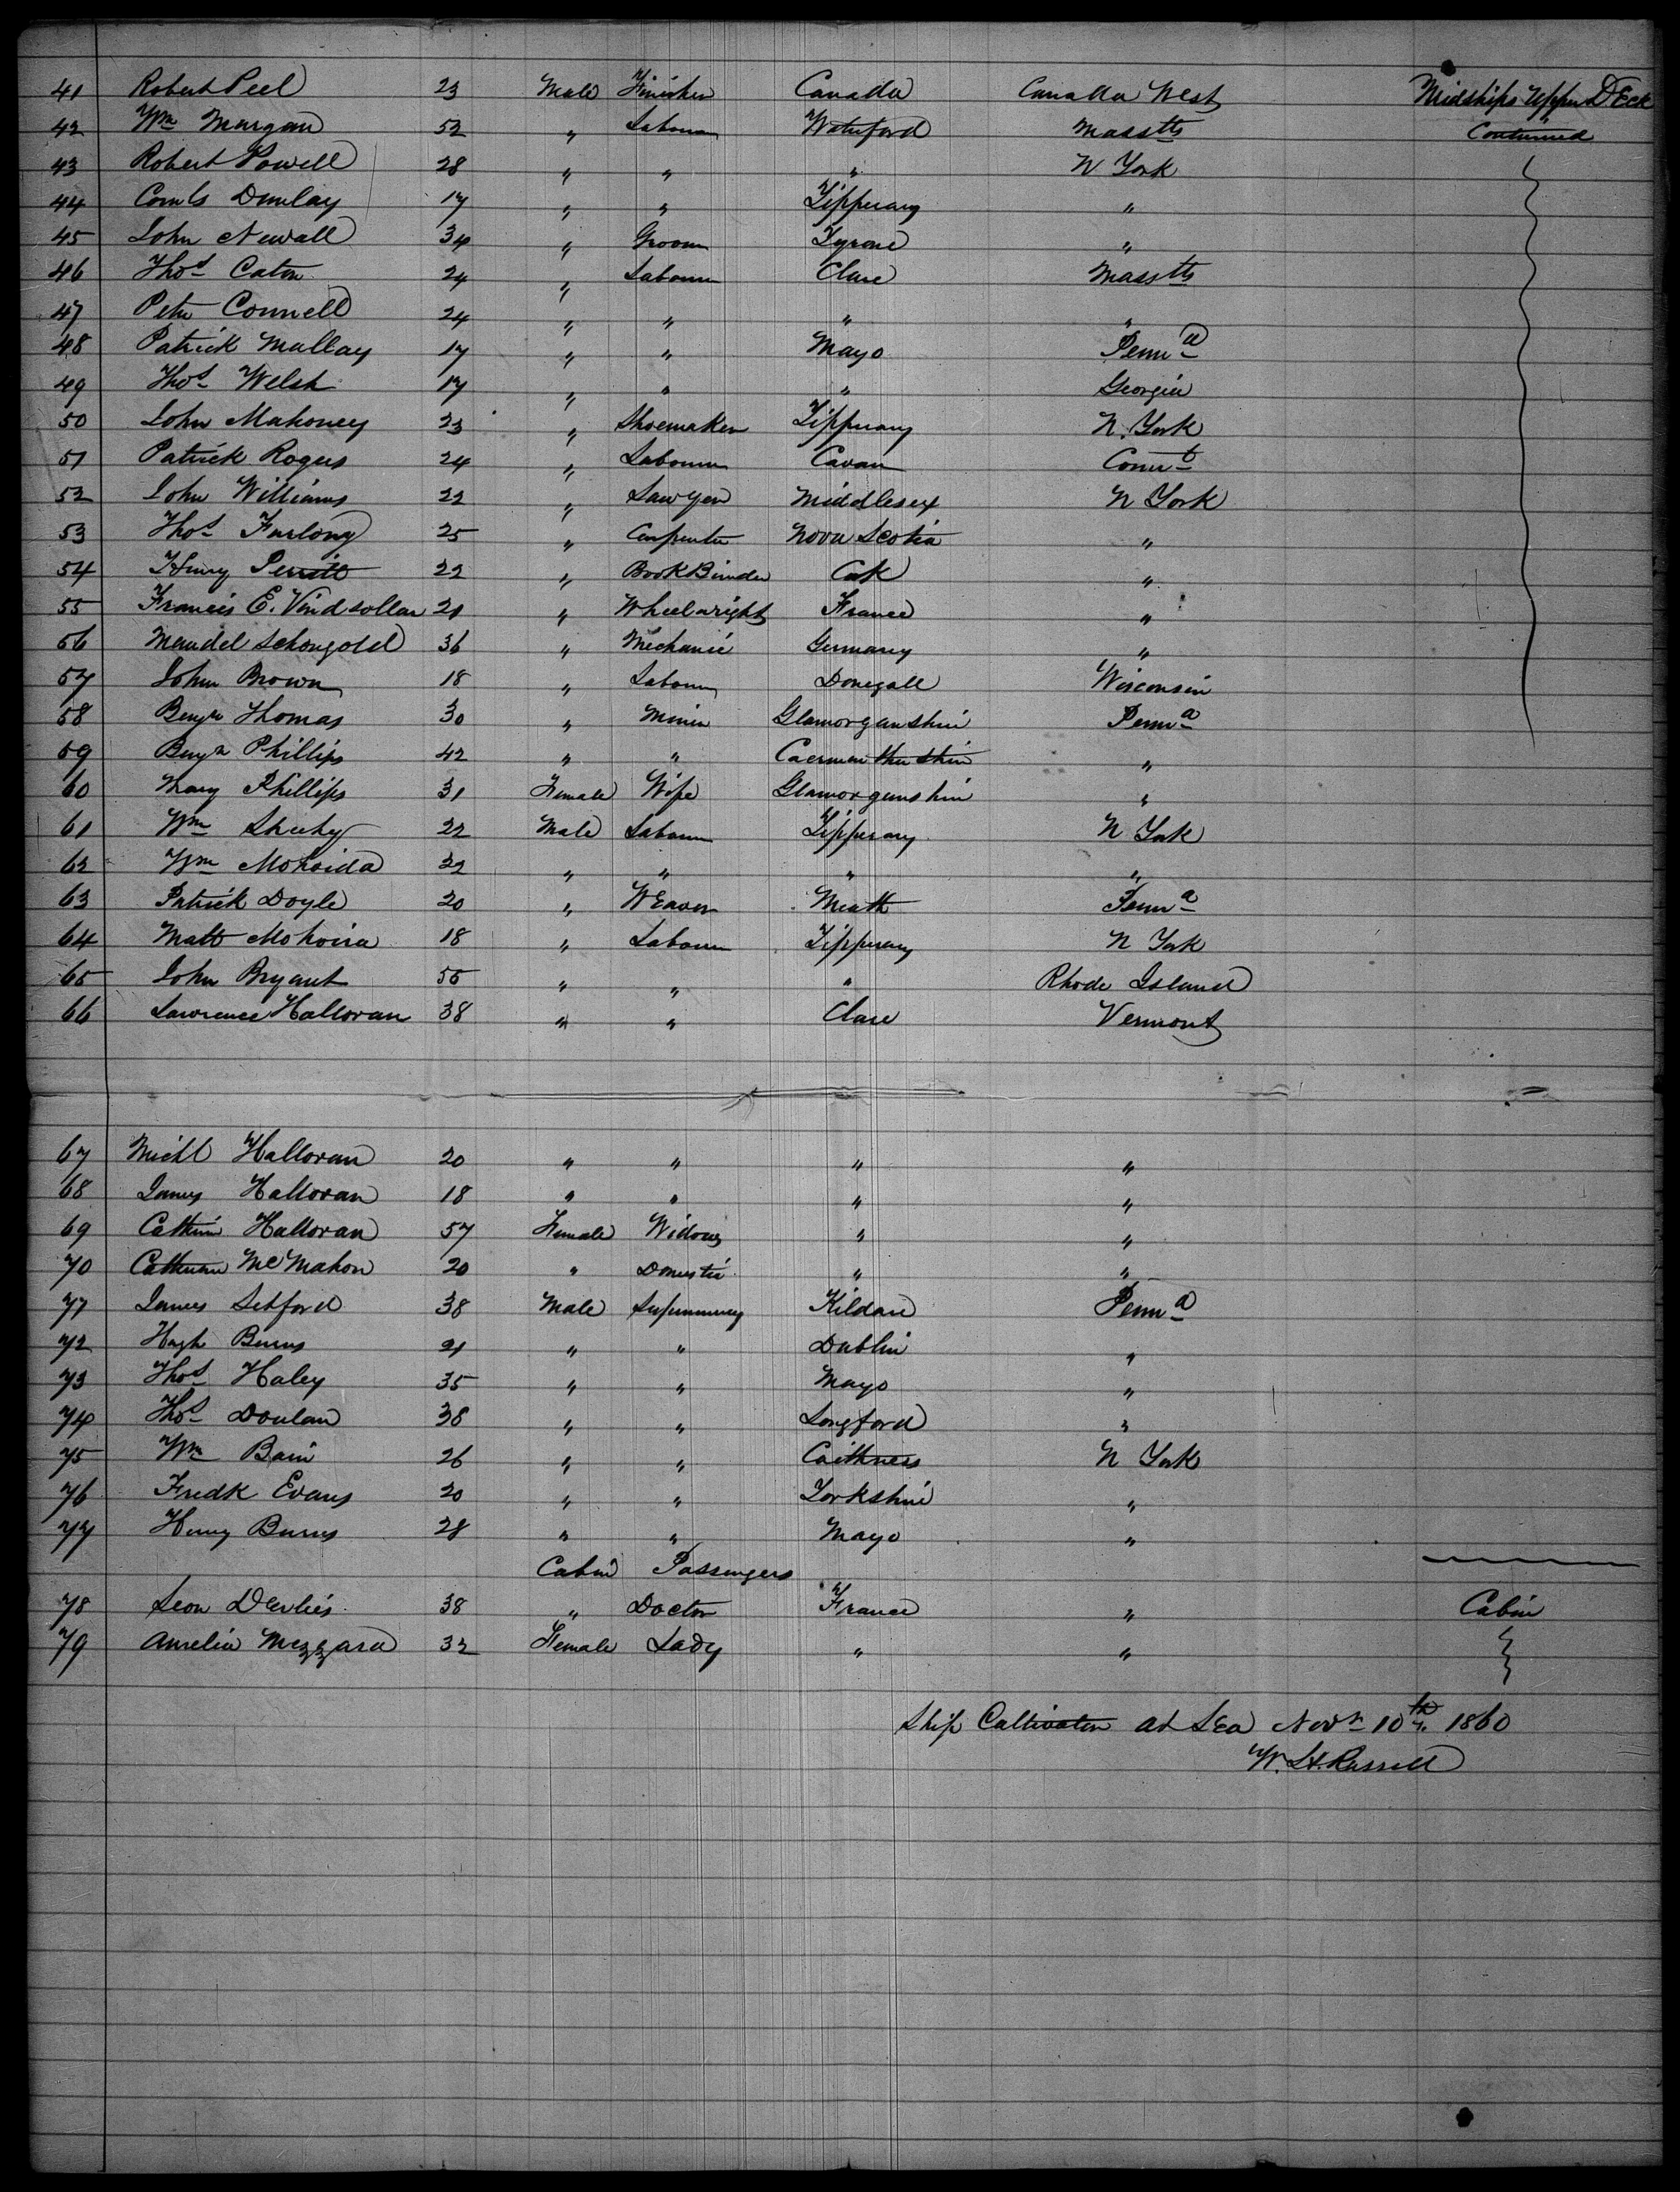 41 Robert Peel 23 Male Finisher Canada Canada West Midships Upper Deck
42 Wm Margan 52 " Labourer Waterford Masstts Continued
43 Robert Powell 28 " " " N York
44 Cornls Dunlay 17 " " Tipperary "
45 John Newall 34 " Groom Tyrone "
46 Thos Caton 24 " Labourer Clare Masstts
47 Peter Connell 24 " " " "
48 Patrick Mallay 17 " " Mayo Penna
49 Thos Welsh 17 " " " Georgia
50 John Mahoney 23 " Shoemaker Tipperary N. York
51 Patrick Rogers 24 " Labourer Cavan Connt
52 John Williams 22 " Sawyer Middlesex N York
53 Thos Furlong 25 " Carpenter Nova Scotia "
54 Henry Perritt 22 " BookBinder Cork "
55 Francis E. Vindsollar 21 " Wheelwright France "
56 Mandel Schongold 36 " Mechanic Germany "
57 John Brown 18 " Labourer Donegall Wisconsin
58 Benjn Thomas 30 " Miner Glamorganshire Penna
59 Benjn Phillips 42 " " Caermarthenshire "
60 Mary Phillips 31 Female Wife Glamorganshire "
61 Wm Sheehy 22 Male Labourer Tipperary N York
62 Wm Mohoida 22 " " " "
63 Patrick Doyle 20 " Weaver Meath Penna
64 Matt Mohoira 18 " Labourer Tipperary N York
65 John Bryant 55 " " " Rhode Island
66 Lawrence Halloran 38 " " Clare Vermont
67 Michl Halloran 20 " " " "
68 James Halloran 18 " " " "
69 Cathrin Halloran 57 Female Widow " "
70 Catherine McMahon 20 " Domestic " "
71 James Setford 38 Male Supernumery Kildare Penna
72 Hugh Burns 21 " " Dublin "
73 Thos Haley 35 " " Mayo "
74 Thos Doulan 38 " " Longford "
75 Wm Bain 26 " " Caithness N York
76 Fredk Evans 20 " " Yorkshire "
77 Henry Burns 28 " " Mayo "
Cabin Passengers
78 Leon 38 " Doctor France " Cabin
79 Aurelia Mezzara 32 Female Lady " "
Ship Cultivator at Sea Novr 10th 1860
W. H. Russell